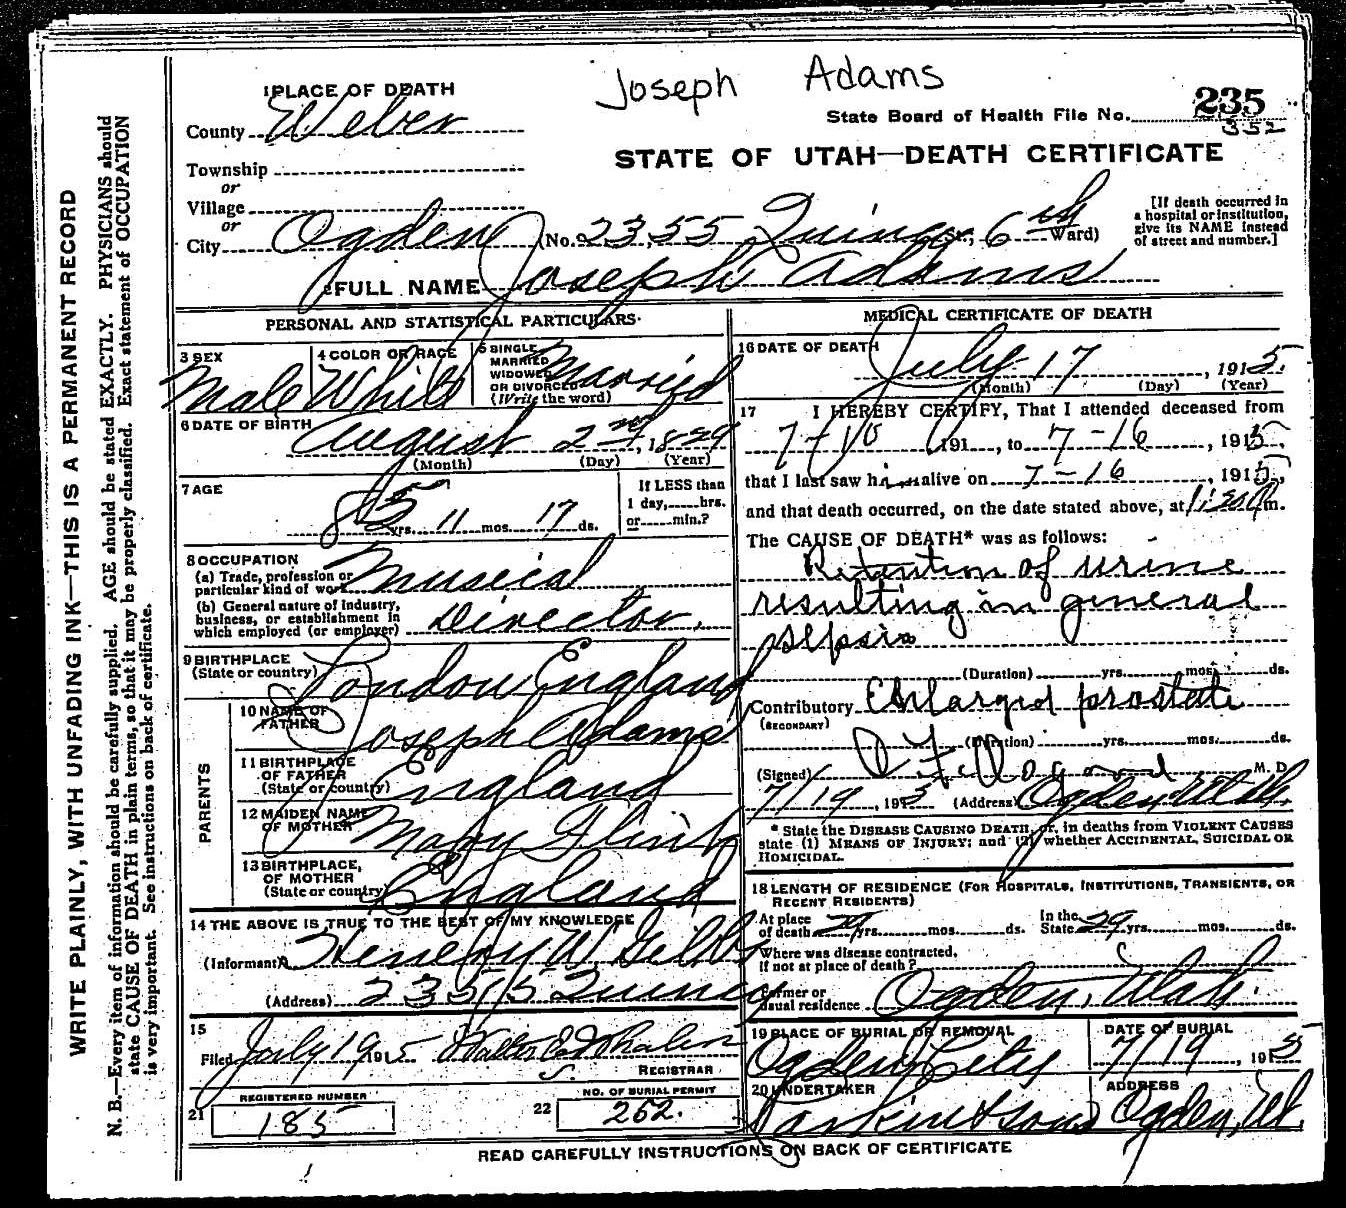 Joseph Adams
1 PLACE OF DEATH
County Weber
State Board of Health File No. 235
352
STATE OF UTAH—DEATH CERTIFICATE
Township
or
Village
or
City Ogden (No. 2355 Quincy St., 6th Ward)
[If death occurred in
a hospital or institution,
give its NAME instead
of street and number.]
2 FULL NAME Joseph Adams
PERSONAL AND STATISTICAL PARTICULARS
3 SEX Male
4 COLOR OR RACE White
5 SINGLE
MARRIED
WIDOWED
OR DIVORCED
(Write the word) Married
6 DATE OF BIRTH August 2nd, 1829
(Month) (Day) (Year)
7 AGE
85 yrs. 11 mos. 17 ds.
If LESS than
1 day, hrs.
or min.?
8 OCCUPATION
(a) Trade, profession or
particular kind of work Musical
(b) General nature of industry,
business, or establishment in
which employed (or employer) Director.
9 BIRTHPLACE
(State or country) London England
PARENTS
10 NAME OF
FATHER Joseph Adams
11 BIRTHPLACE
OF FATHER
(State or country) England
12 MAIDEN NAME
OF MOTHER Mary
13 BIRTHPLACE,
OF MOTHER
(State or country) England
14 THE ABOVE IS TRUE TO THE BEST OF MY KNOWLEDGE
(Informant) Henery W Gibbs
(Address) 2355 Quincy
15
Filed July 19 1915 Walter E. Whalen
REGISTRAR
REGISTERED NUMBER
21 185
NO. OF BURIAL PERMIT
22 262.
MEDICAL CERTIFICATE OF DEATH
16 DATE OF DEATH
July 17, 1915.
(Month) (Day) (Year)
17 I HEREBY CERTIFY, That I attended deceased from
7-10 191 , to 7-16, 1915,
that I last saw him alive on 7-16, 1915,
and that death occurred, on the date stated above, at m.
The CAUSE OF DEATH* was as follows:
Retention of urine
resulting in general
sepsis
(Duration) yrs. mos. ds.
Contributory Enlarged prostate
(SECONDARY)
(Duration) yrs. mos. ds.
(Signed) M. D.
7/19, 1915 (Address) Ogden Utah.
* State the DISEASE CAUSING DEATH, or, in deaths from VIOLENT CAUSES
state (1) MEANS OF INJURY; and (2) whether ACCIDENTAL, SUICIDAL OR
HOMICIDAL.
18 LENGTH OF RESIDENCE (FOR HOSPITALS, INSTITUTIONS, TRANSIENTS, OR
RECENT RESIDENTS)
At place
of death 29 yrs. mos. ds.
In the
State 29 yrs. mos. ds.
Where was disease contracted,
if not at place of death?
Former or
usual residence Ogden, Utah.
19 PLACE OF BURIAL OR REMOVAL
Ogden City
DATE OF BURIAL
7/19, 1915
20 UNDERTAKER
Larkin & Sons
ADDRESS
Ogden, Ut.
READ CAREFULLY INSTRUCTIONS ON BACK OF CERTIFICATE
WRITE PLAINLY, WITH UNFADING INK—THIS IS A PERMANENT RECORD
N. B.—Every item of information should be carefully supplied. AGE should be stated EXACTLY. PHYSICIANS should
state CAUSE OF DEATH in plain terms, so that it may be properly classified. Exact statement of OCCUPATION
is very important. See instructions on back of certificate.